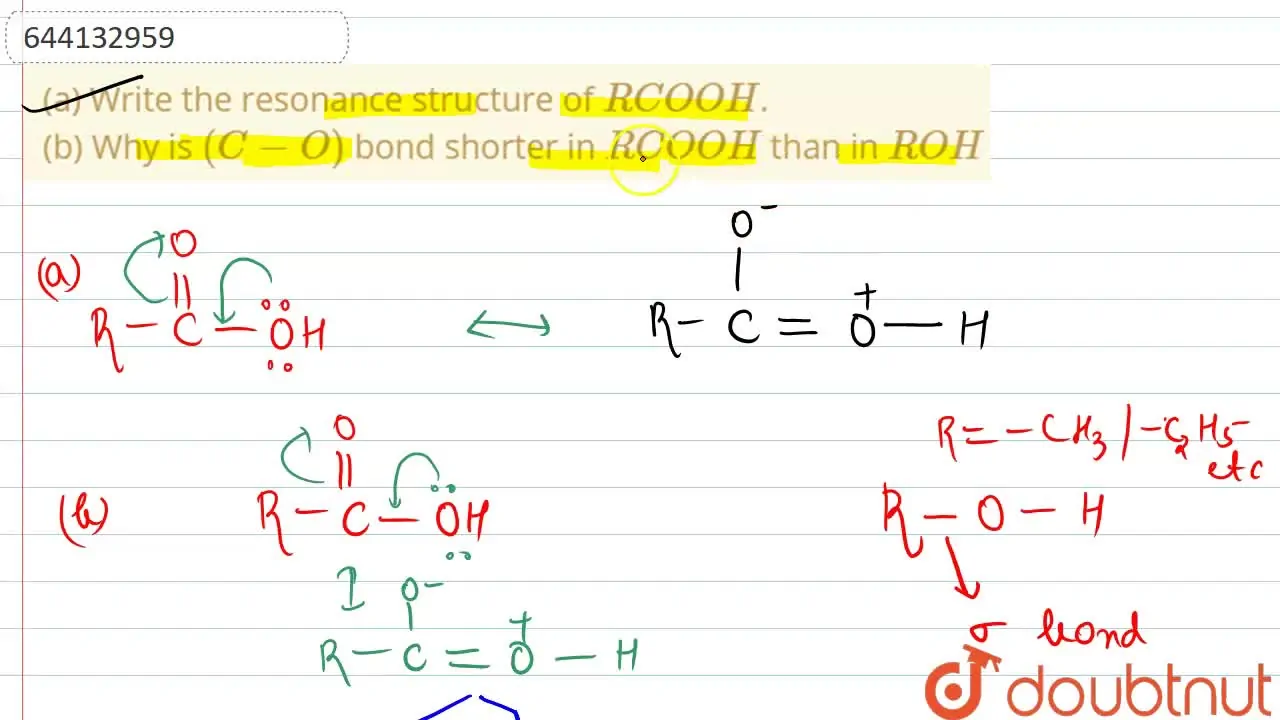 644132959
(a) Write the resonance structure of RCOOH.
(b) Why is (C − O) bond shorter in RCOOH than in ROH
(a)
O
R − C − OH
O−
R − C = O+ — H
R = − CH3 / − C2H5 −
etc
(b)
O
R − C − OH
R − O − H
O−
R − C = O+ − H
σ bond
doubtnut